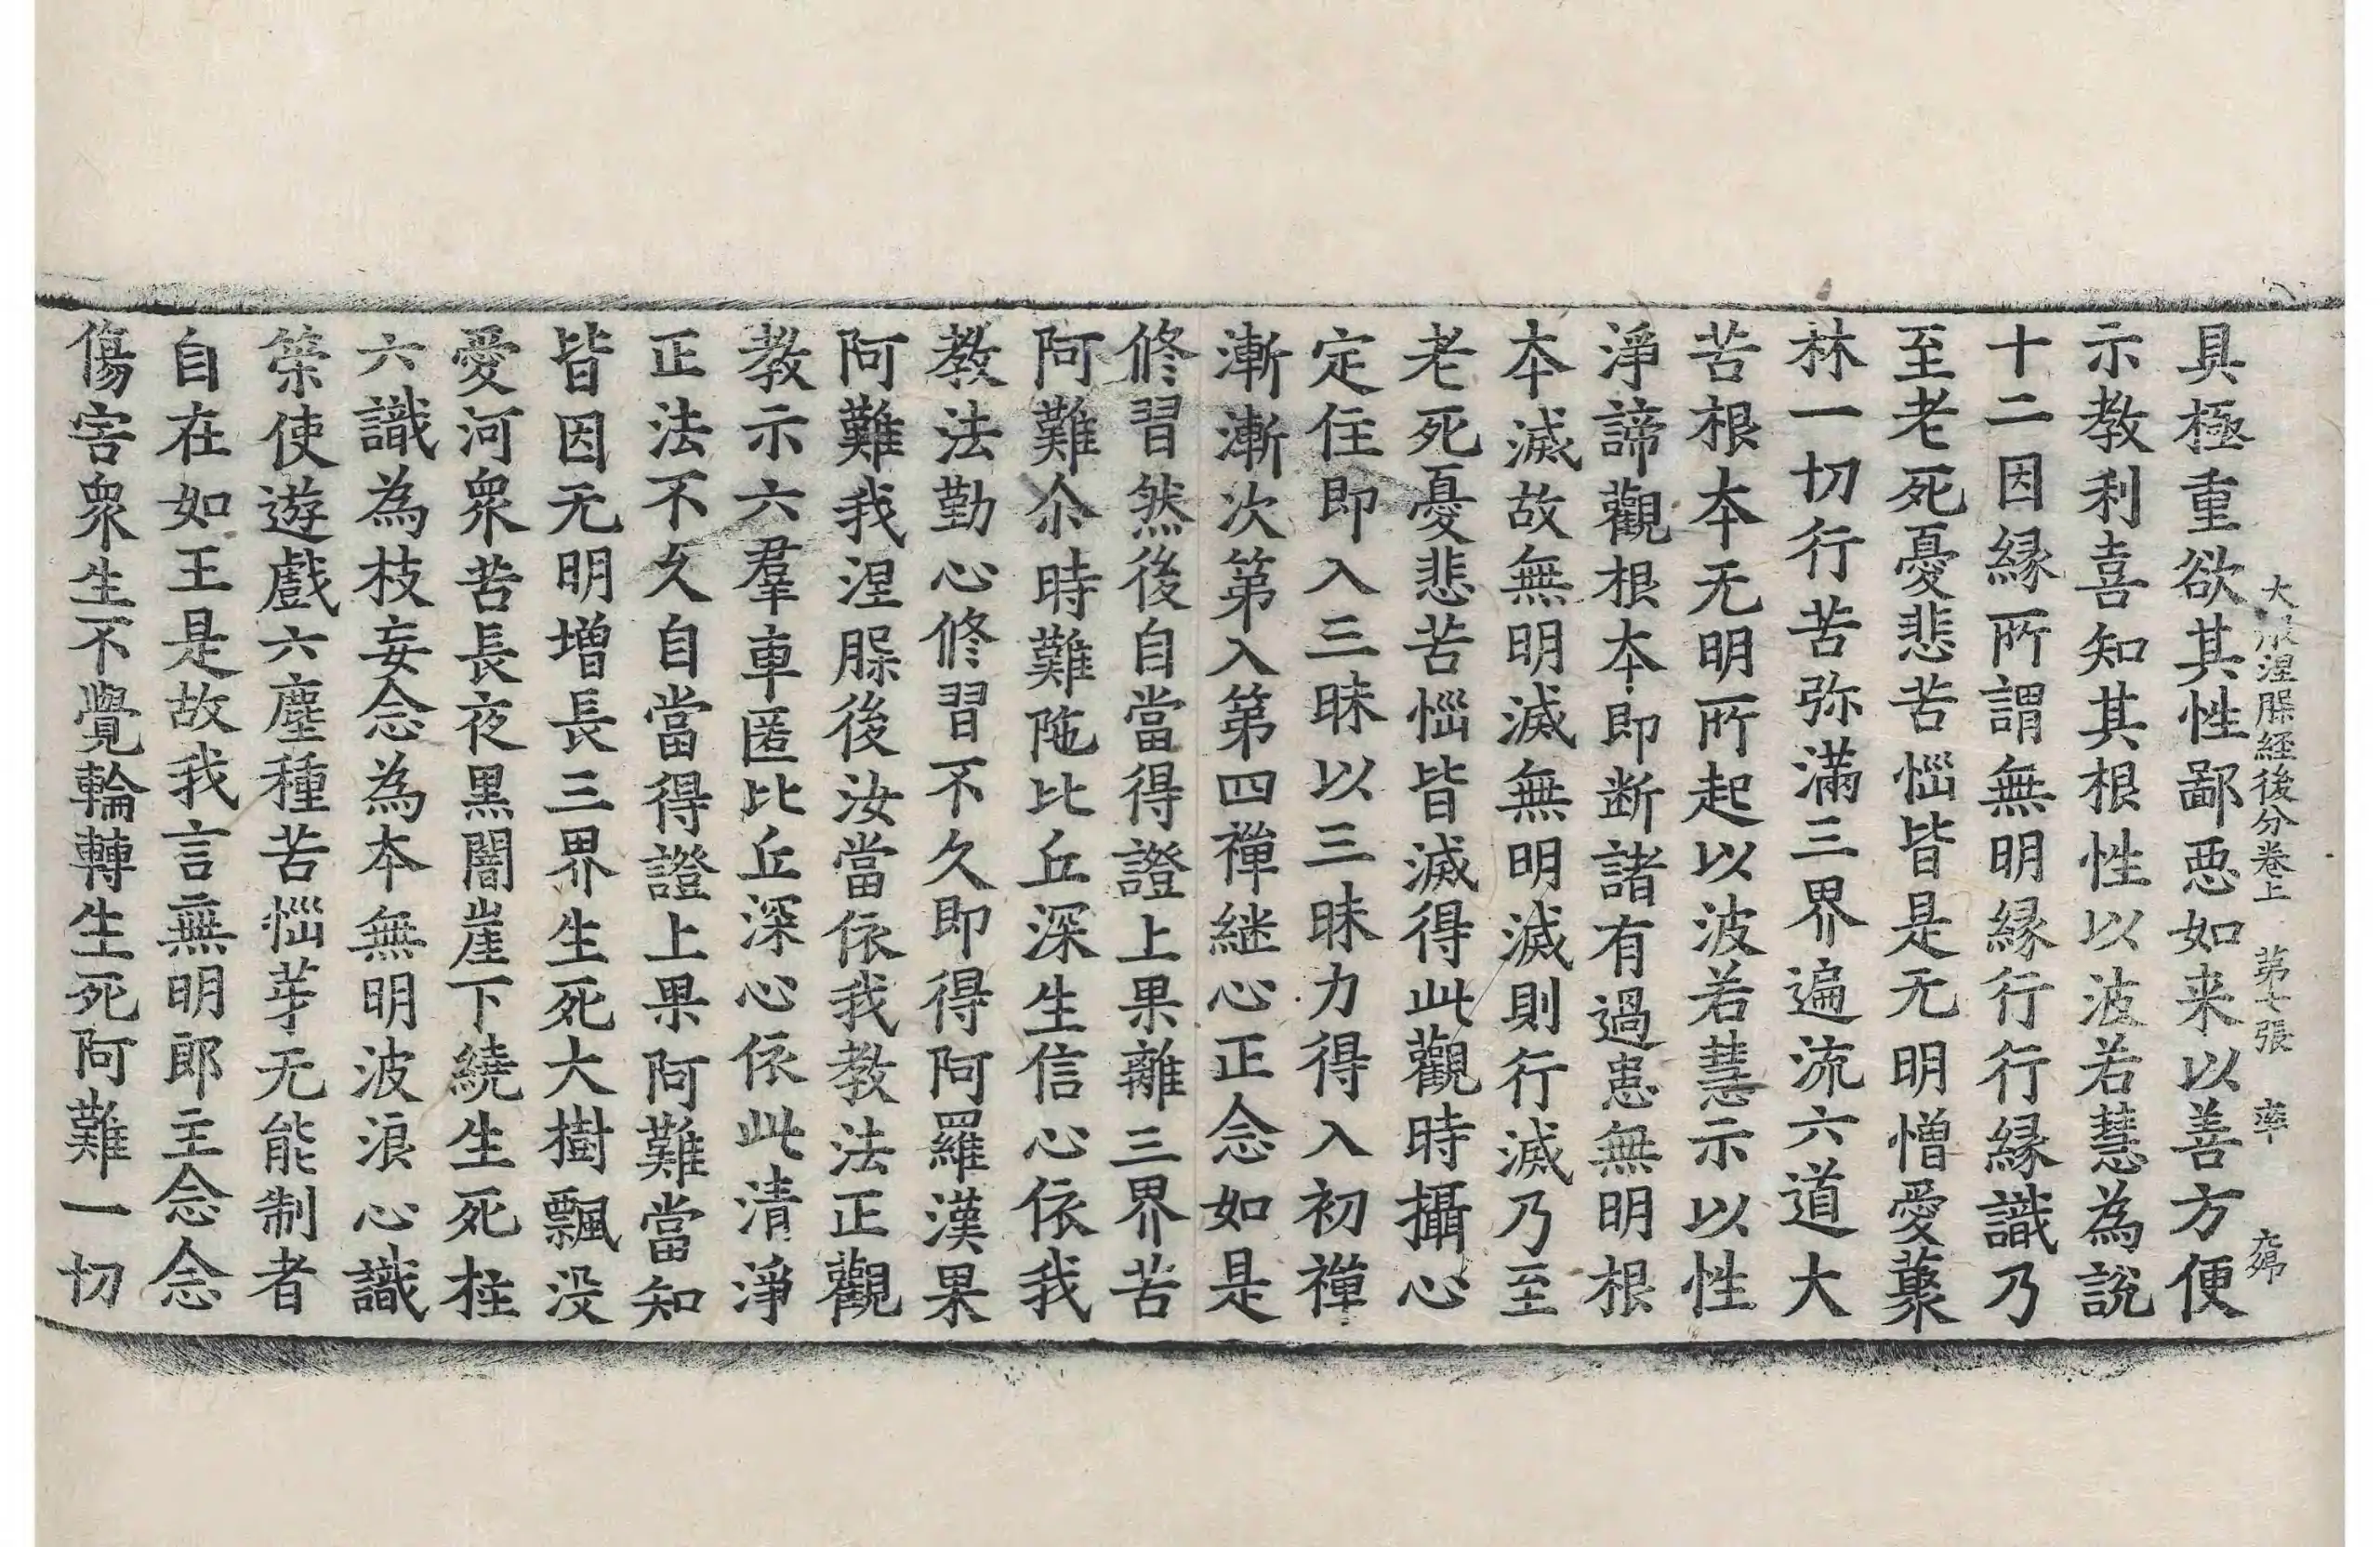 大般涅槃経後分卷上 第七張 率 大弟
具極重欲其性鄙惡如来以善方便
示教利喜知其根性以波若慧為説
十二因縁所謂無明縁行行縁識乃
至老死憂悲苦惱皆是无明憎愛藂
林一切行苦弥滿三界遍流六道大
苦根本无明所起以波若慧示以性
淨諦觀根本即断諸有過患無明根
本滅故無明滅無明滅滅則行滅乃至
老死憂悲苦惱皆滅得此觀時攝心
定住即入三昧以三昧力得入初禪
漸漸次第入第四禪継心正念如是
修習然後自當得證上果離三界苦
阿難尒時難陁比丘深生信心依我
教法勤心修習不久即得阿羅漢果
阿難我涅槃後汝當依我教法正觀
教示六羣車匿比丘深心依此清淨
正法不久自當得證上果阿難當知
皆因无明增長三界生死大樹飄没
愛河衆苦長夜黒闇崖下繞生死柱
六識為枝妄念為本無明波浪心識
策使遊戲六塵種苦惱芽无能制者
自在如王是故我言無明郎主念念
傷害衆生不覺輪轉生死阿難一切